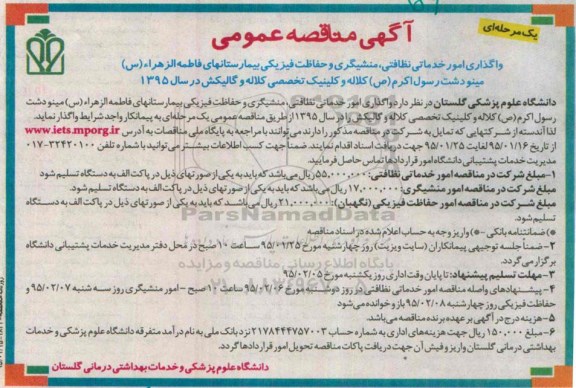 یک مرحله‌ای
آگهی مناقصه عمومی
واگذاری امور خدماتی نظافتی، منشیگری و حفاظت فیزیکی بیمارستانهای فاطمه الزهراء (س)
مینودشت رسول اکرم (ص) کلاله و کلینیک تخصصی کلاله و گالیکش در سال ۱۳۹۵
دانشگاه علوم پزشکی گلستان در نظر دارد واگذاری امور خدماتی نظافتی، منشیگری و حفاظت فیزیکی بیمارستانهای فاطمه الزهراء (س) مینودشت
رسول اکرم (ص) کلاله و کلینیک تخصصی کلاله و گالیکش را در سال ۱۳۹۵ از طریق مناقصه عمومی یک مرحله‌ای به پیمانکار واجد شرایط واگذار نماید.
لذا آندسته از شرکتهایی که تمایل به شرکت در مناقصه مذکور را دارند می‌توانند با مراجعه به پایگاه ملی مناقصات به آدرس www.iets.mporg.ir
از تاریخ ۹۵/۰۱/۱۶ لغایت ۹۵/۰۱/۲۵ جهت دریافت اسناد اقدام نمایند. ضمناً جهت کسب اطلاعات بیشتر می‌توانید با شماره تلفن ۳۲۴۲۰۱۰۰-۰۱۷
مدیریت خدمات پشتیبانی دانشگاه امور قراردادها تماس حاصل فرمایید.
۱-مبلغ شرکت در مناقصه امور خدماتی نظافتی: ۵۵,۰۰۰,۰۰۰ ریال می‌باشد که باید به یکی از صورتهای ذیل در پاکت الف به دستگاه تسلیم شود
مبلغ شرکت در مناقصه امور منشیگری: ۱۷,۰۰۰,۰۰۰ ریال می‌باشد که باید به یکی از صورتهای ذیل در پاکت الف به دستگاه تسلیم شود.
مبلغ شرکت در مناقصه امور حفاظت فیزیکی (نگهبان): ۲۱,۰۰۰,۰۰۰ ریال می‌باشد که باید به یکی از صورتهای ذیل در پاکت الف به دستگاه
تسلیم شود.
*) ضمانتنامه بانکی - *) واریز وجه به حساب اعلام شده در اسناد مناقصه
۲- ضمناً جلسه توجیهی پیمانکاران (سایت ویزیت) روز چهارشنبه مورخ ۹۵/۰۱/۲۵ ساعت ۱۰ صبح در محل دفتر مدیریت خدمات پشتیبانی دانشگاه
برگزار می‌گردد.
۳- مهلت تسلیم پیشنهاد: تا پایان وقت اداری روز یکشنبه مورخ ۹۵/۰۲/۰۵
۴- پیشنهادهای واصله مناقصه امور خدماتی نظافتی در روز دوشنبه مورخ ۹۵/۰۲/۰۶ ساعت ۱۰ صبح - امور منشیگری روز سه شنبه ۹۵/۰۲/۰۷ و
حفاظت فیزیکی روز چهارشنبه ۹۵/۰۲/۰۸ باز و خوانده می‌شود
۵-هزینه درج در آگهی بر عهده برنده مناقصه می‌باشد.
۶-مبلغ ۱۵۰,۰۰۰ ریال جهت هزینه‌های اداری به شماره حساب ۲۱۷۸۴۴۴۷۵۷۰۰۳ نزد بانک ملی به نام درآمد متفرقه دانشگاه علوم پزشکی و خدمات
بهداشتی درمانی گلستان واریز و فیش آن جهت دریافت پاکات مناقصه تحویل امور قراردادها گردد.
دانشگاه علوم پزشکی و خدمات بهداشتی درمانی گلستان
ParsNamadData